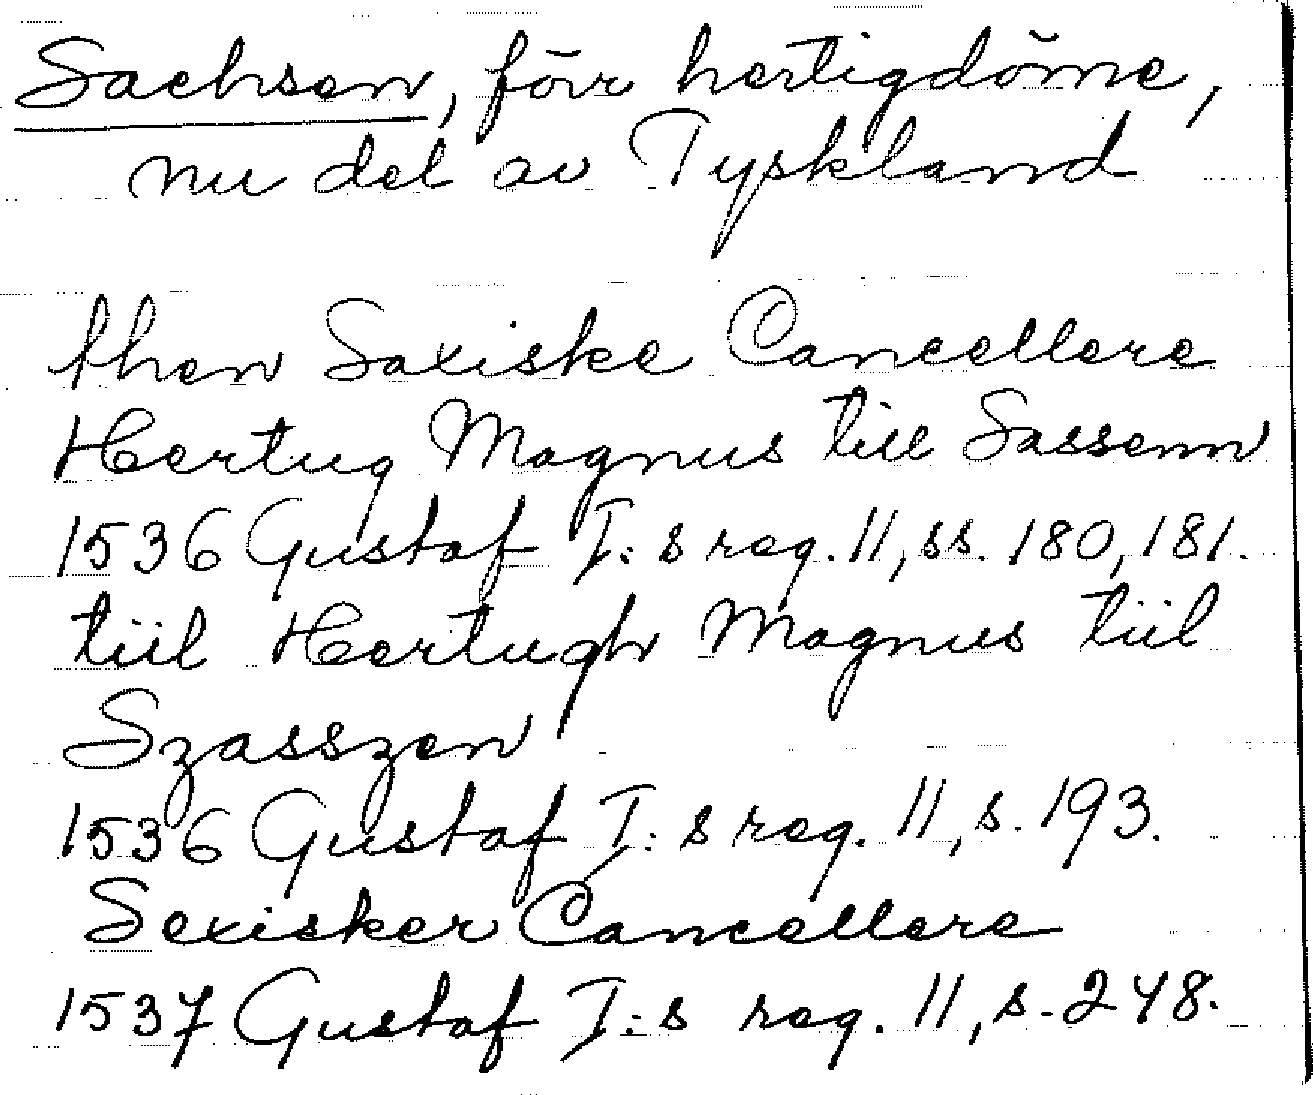 Sachsen, förr hertigdöme,
nu del av Tyskland
then Saxiske Cancellere
Hertug Magnus tiil Sassenn
1536 Gustaf I:s reg. 11, ss. 180, 181.
tiil Hertugh Magnus tiil
Szasszen
1536 Gustaf I:s reg. 11, s. 193.
Sexisker Cancellere
1537 Gustaf I:s reg. 11, s. 248.